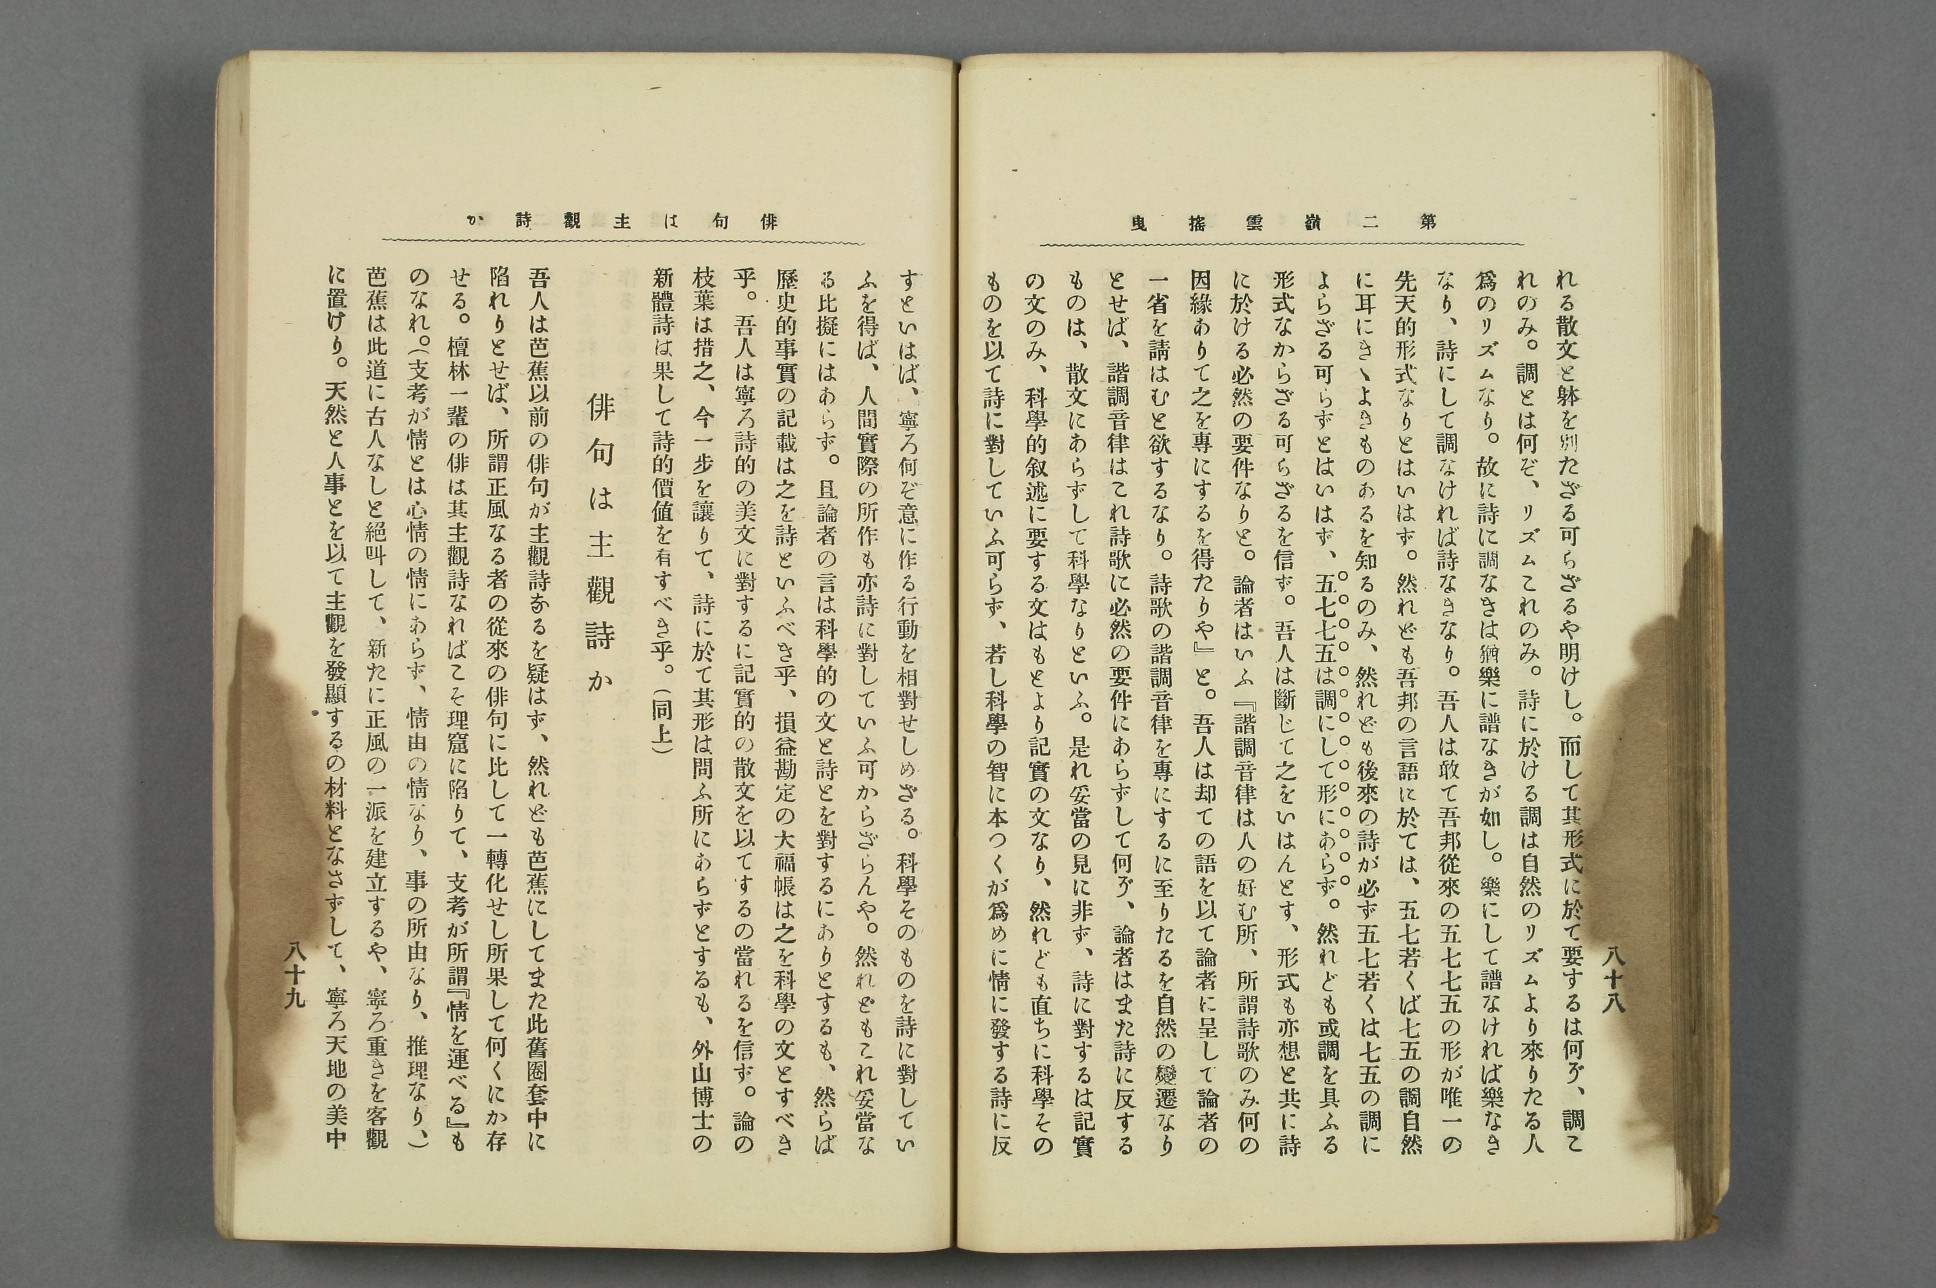 第二嶺雲搖曳
れる散文と躰を別たざる可らざるや明けし。而して其形式に於て要するは何ぞ、調こ
れのみ。調とは何ぞ、リズムこれのみ。詩に於ける調は自然のリズムより來りたる人
爲のリズムなり。故に詩に調なきは猶樂に譜なきが如し。樂にして譜なければ樂なき
なり、詩にして調なければ詩なきなり。吾人は敢て吾邦從來の五七七五の形が唯一の
先天的形式なりとはいはず。然れども吾邦の言語に於ては、五七若くば七五の調自然
に耳にきゝよきものあるを知るのみ、然れども後來の詩が必ず五七若くは七五の調に
よらざる可らずとはいはず、五七七五は調にして形にあらず。然れども或調を具ふる
形式なからざる可らざるを信ず。吾人は斷じて之をいはんとす、形式も亦想と共に詩
に於ける必然の要件なりと。論者はいふ『諧調音律は人の好む所、所謂詩歌のみ何の
因緣ありて之を專にするを得たりや』と。吾人は却ての語を以て論者に呈して論者の
一省を請はむと欲するなり。詩歌の諧調音律を專にするに至りたるを自然の變遷なり
とせば、諧調音律はこれ詩歌に必然の要件にあらずして何ぞ、論者はまた詩に反する
ものは、散文にあらずして科學なりといふ。是れ妥當の見に非ず、詩に對するは記實
の文のみ、科學的叙述に要する文はもとより記實の文なり、然れども直ちに科學その
ものを以て詩に對していふ可らず、若し科學の智に本つくが爲めに情に發する詩に反
八十八
俳句は主觀詩か
すといはば、寧ろ何ぞ意に作る行動を相對せしめざる。科學そのものを詩に對してい
ふを得ば、人間實際の所作も亦詩に對していふ可からざらんや。然れどもこれ妥當な
る比擬にはあらず。且論者の言は科學的の文と詩とを對するにありとするも、然らば
歷史的事實の記載は之を詩といふべき乎、損益勘定の大福帳は之を科學の文とすべき
乎。吾人は寧ろ詩的の美文に對するに記實的の散文を以てするの當れるを信ず。論の
枝葉は措之、今一步を讓りて、詩に於て其形は問ふ所にあらずとするも、外山博士の
新體詩は果して詩的價値を有すべき乎。（同上）
俳句は主觀詩か
吾人は芭蕉以前の俳句が主觀詩なるを疑はず、然れども芭蕉にしてまた此舊圈套中に
陷れりとせば、所謂正風なる者の從來の俳句に比して一轉化せし所果して何くにか存
せる。檀林一輩の俳は其主觀詩なればこそ理窟に陷りて、支考が所謂『情を運べる』も
のなれ。（支考が情とは心情の情にあらず、情由の情なり、事の所由なり、推理なり、）
芭蕉は此道に古人なしと絕叫して、新たに正風の一派を建立するや、寧ろ重きを客觀
に置けり。天然と人事とを以て主觀を發顯するの材料となさずして、寧ろ天地の美中
八十九